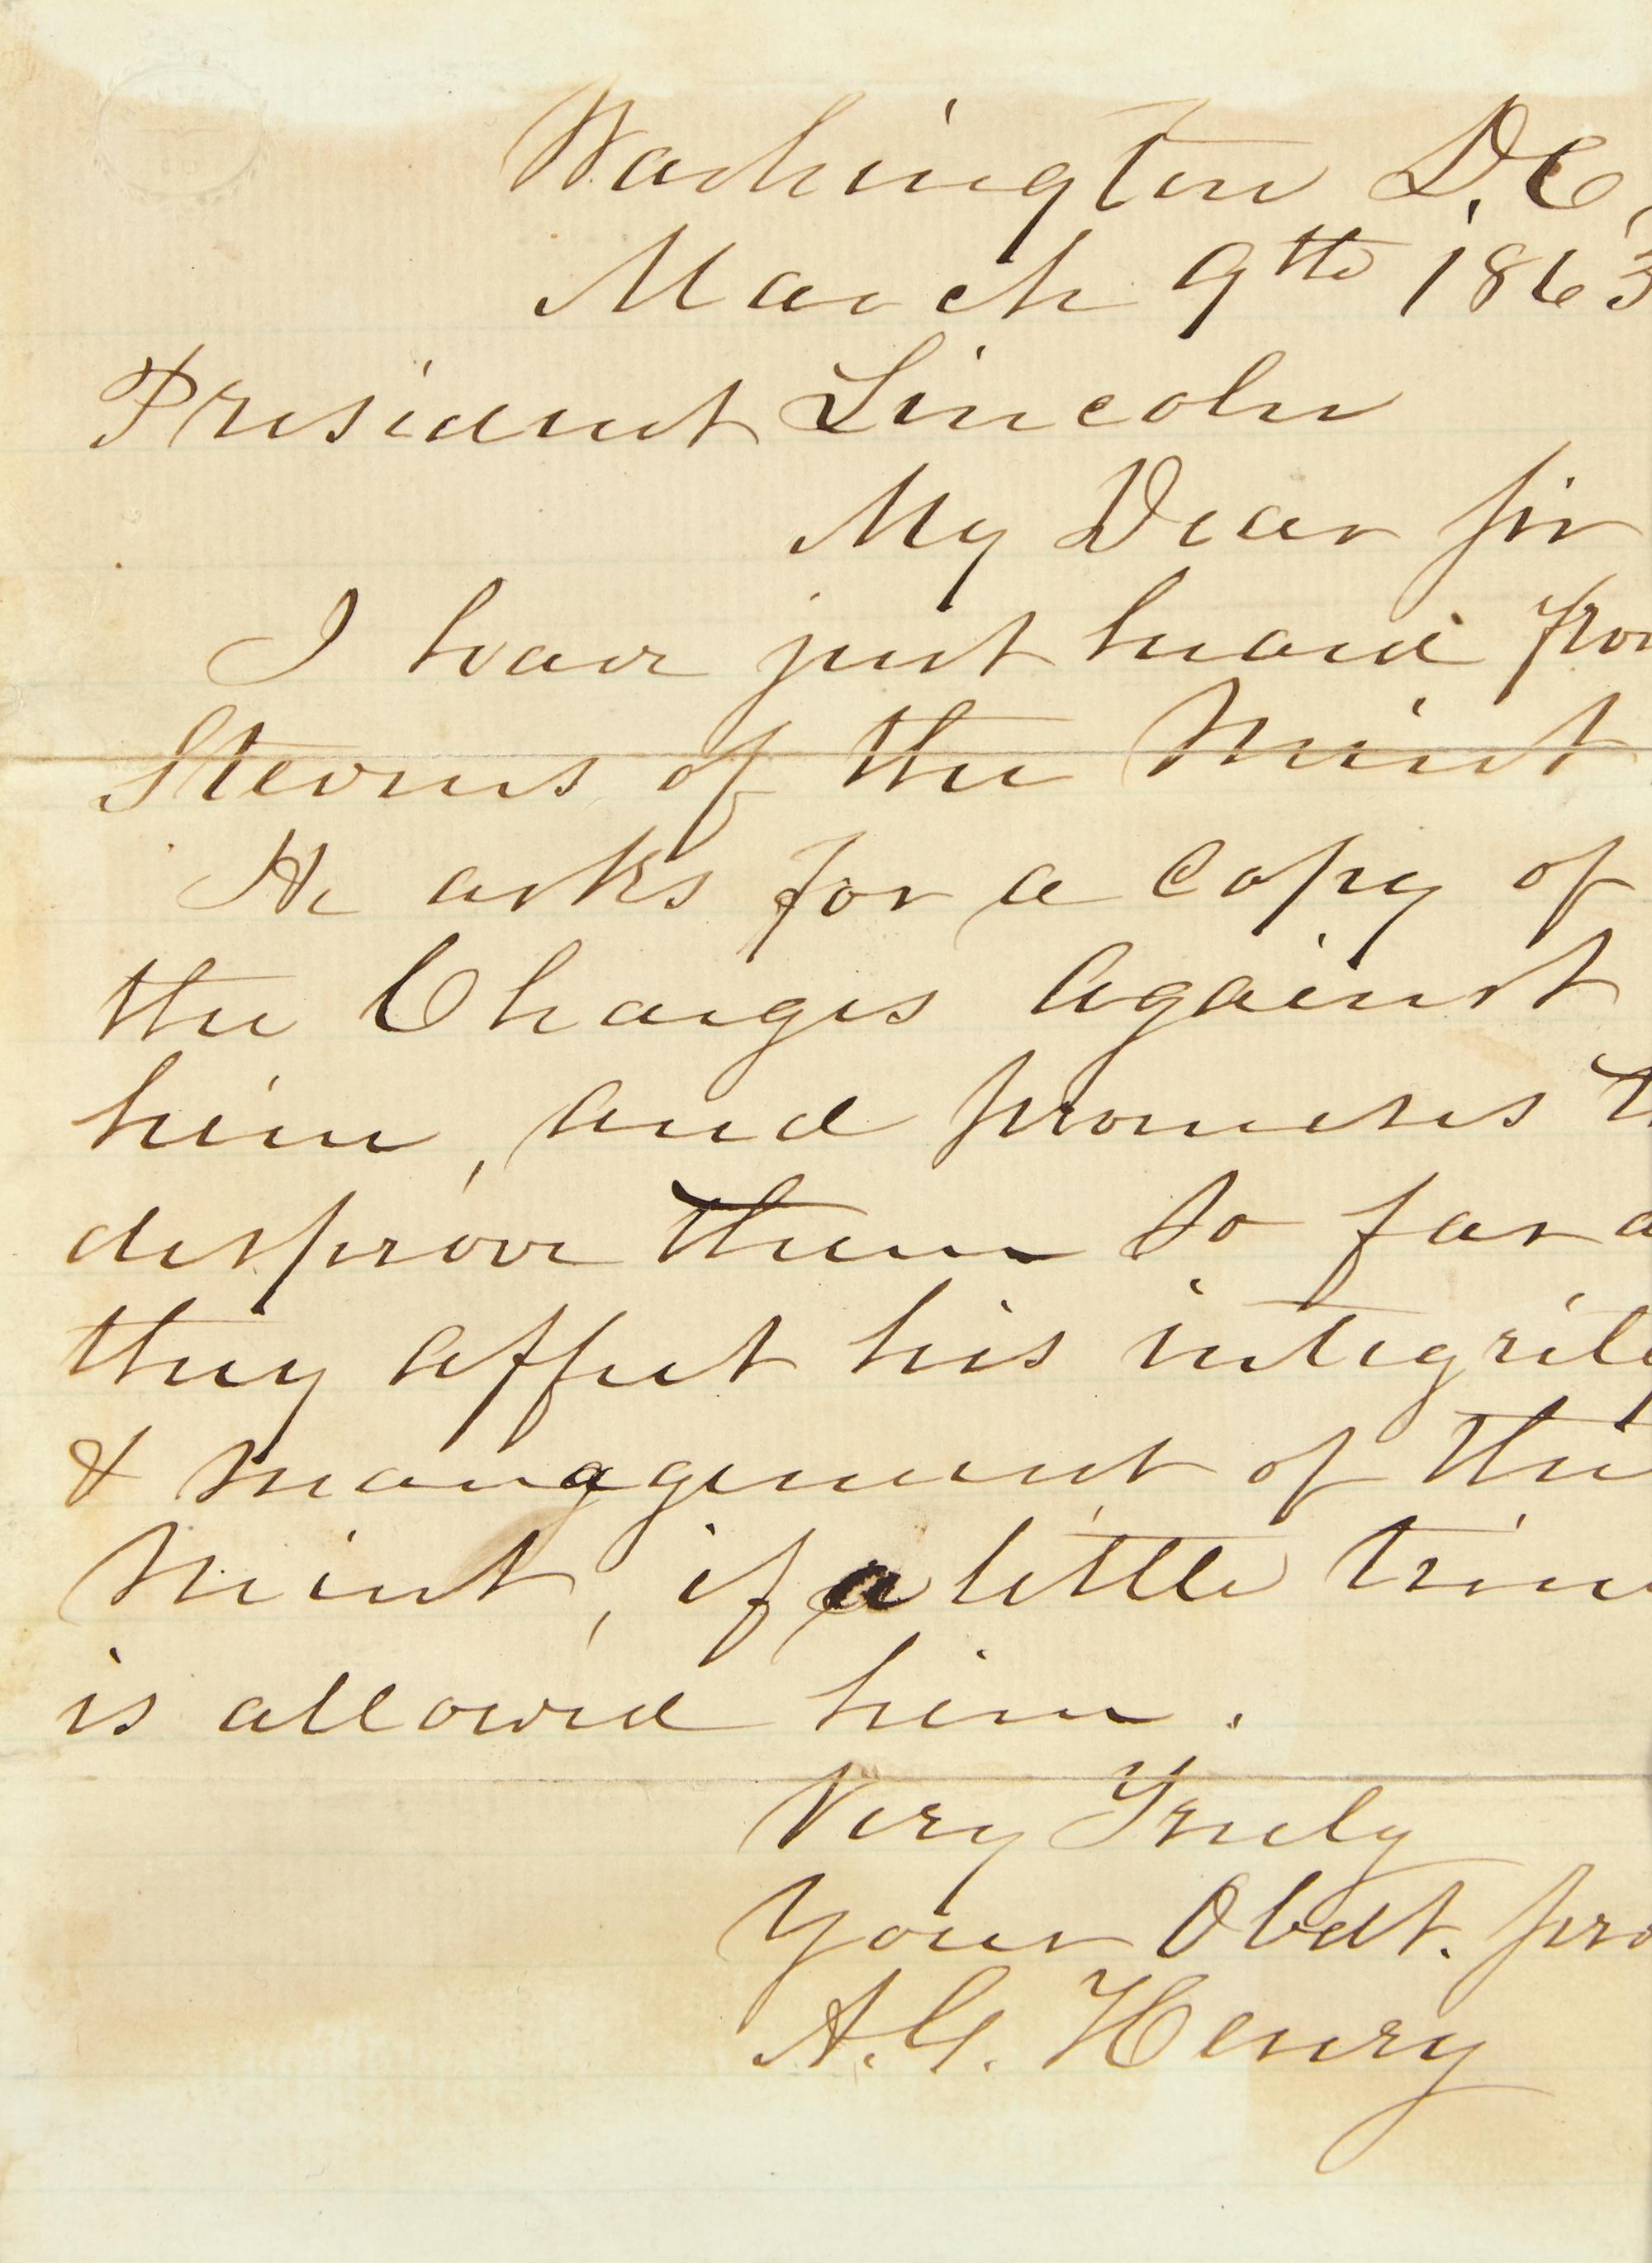 Washington D.C,
March 9th 1863
President Lincoln
My Dear Sir
I have just heard from
Stevens of the Mint
He asks for a copy of
the Charges against
him, and promises to
disprove them so far as
they affect his integrity
& management of the
Mint, if a little time
is allowed him.
Very Truly
Your Obdt.
A.G. Henry